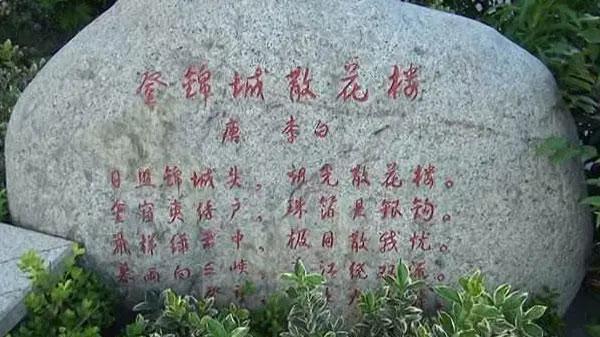 登錦城散花楼
唐 李白
日照錦城头。朝光散花楼。
金窗夹绣户。珠箔悬银钩。
飛梯绿云中。极目散我忧。
暮雨向三峡。江绕双流。